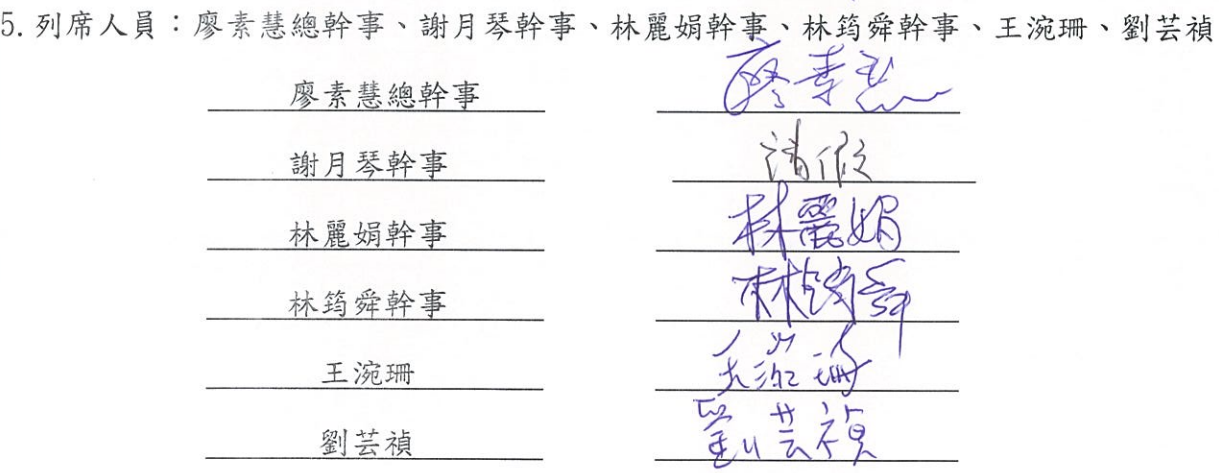 5. 列席人員：廖素慧總幹事、謝月琴幹事、林麗娟幹事、林筠舜幹事、王涴珊、劉芸禎
廖素慧總幹事 廖素慧
謝月琴幹事 請假
林麗娟幹事 林麗娟
林筠舜幹事 林筠舜
王涴珊
劉芸禎 劉芸禎